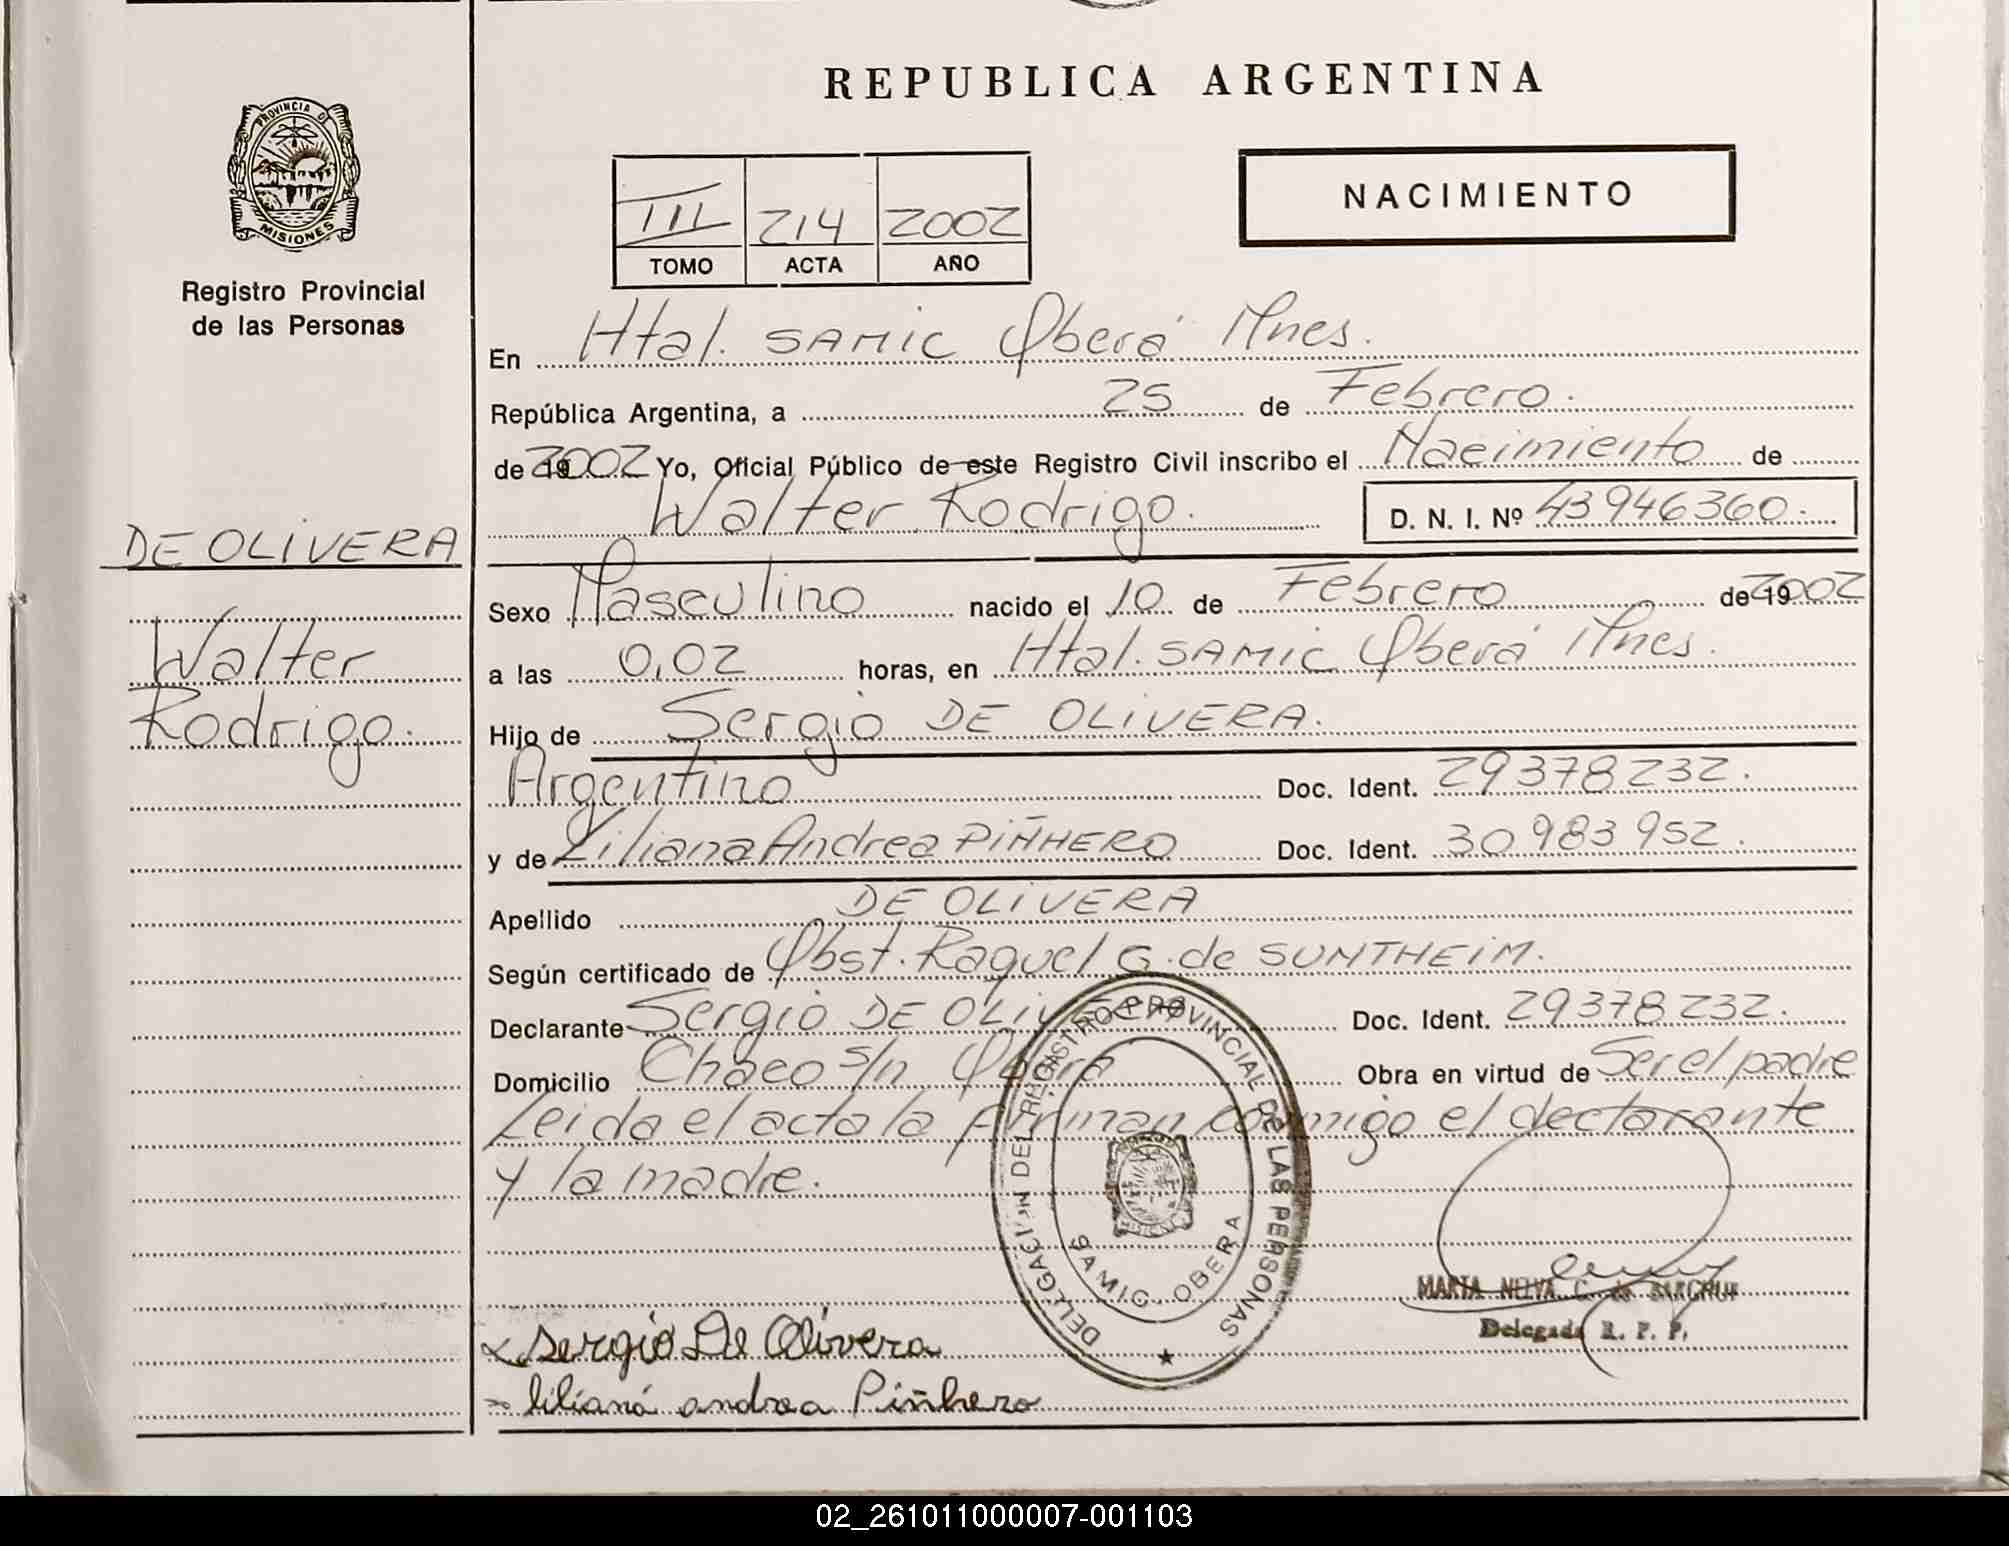 REPUBLICA ARGENTINA
PROVINCIA DE
MISIONES
Registro Provincial
de las Personas
III 214 2002
TOMO ACTA AÑO
NACIMIENTO
En Htal. SAMIC Oberá Mnes.
República Argentina, a 25 de Febrero.
de 2002 Yo, Oficial Público de este Registro Civil inscribo el Nacimiento de
Walter Rodrigo. D. N. I. Nº 43946360.
DE OLIVERA
Walter
Rodrigo.
Sexo Masculino nacido el 10 de Febrero de 2002
a las 0,02 horas, en Htal. SAMIC Oberá Mnes.
Hijo de Sergio DE OLIVERA.
Argentino Doc. Ident. 29378232.
y de Liliana Andrea PIÑHERO Doc. Ident. 30983952.
Apellido DE OLIVERA
Según certificado de Obst. Raquel G. de SUNTHEIM.
Declarante Sergio DE OLIVERA Doc. Ident. 29378232.
Domicilio Chaco s/n Oberá Obra en virtud de Ser el padre
Leida el acta la firman conmigo el declarante
y la madre.
DELEGACION DEL REGISTRO PROVINCIAL DE LAS PERSONAS
SAMIC - OBERA
MARTA NELVA C. de
Delegada R. P. P.
Sergio De Olivera
liliana andrea Piñhero
02_261011000007-001103